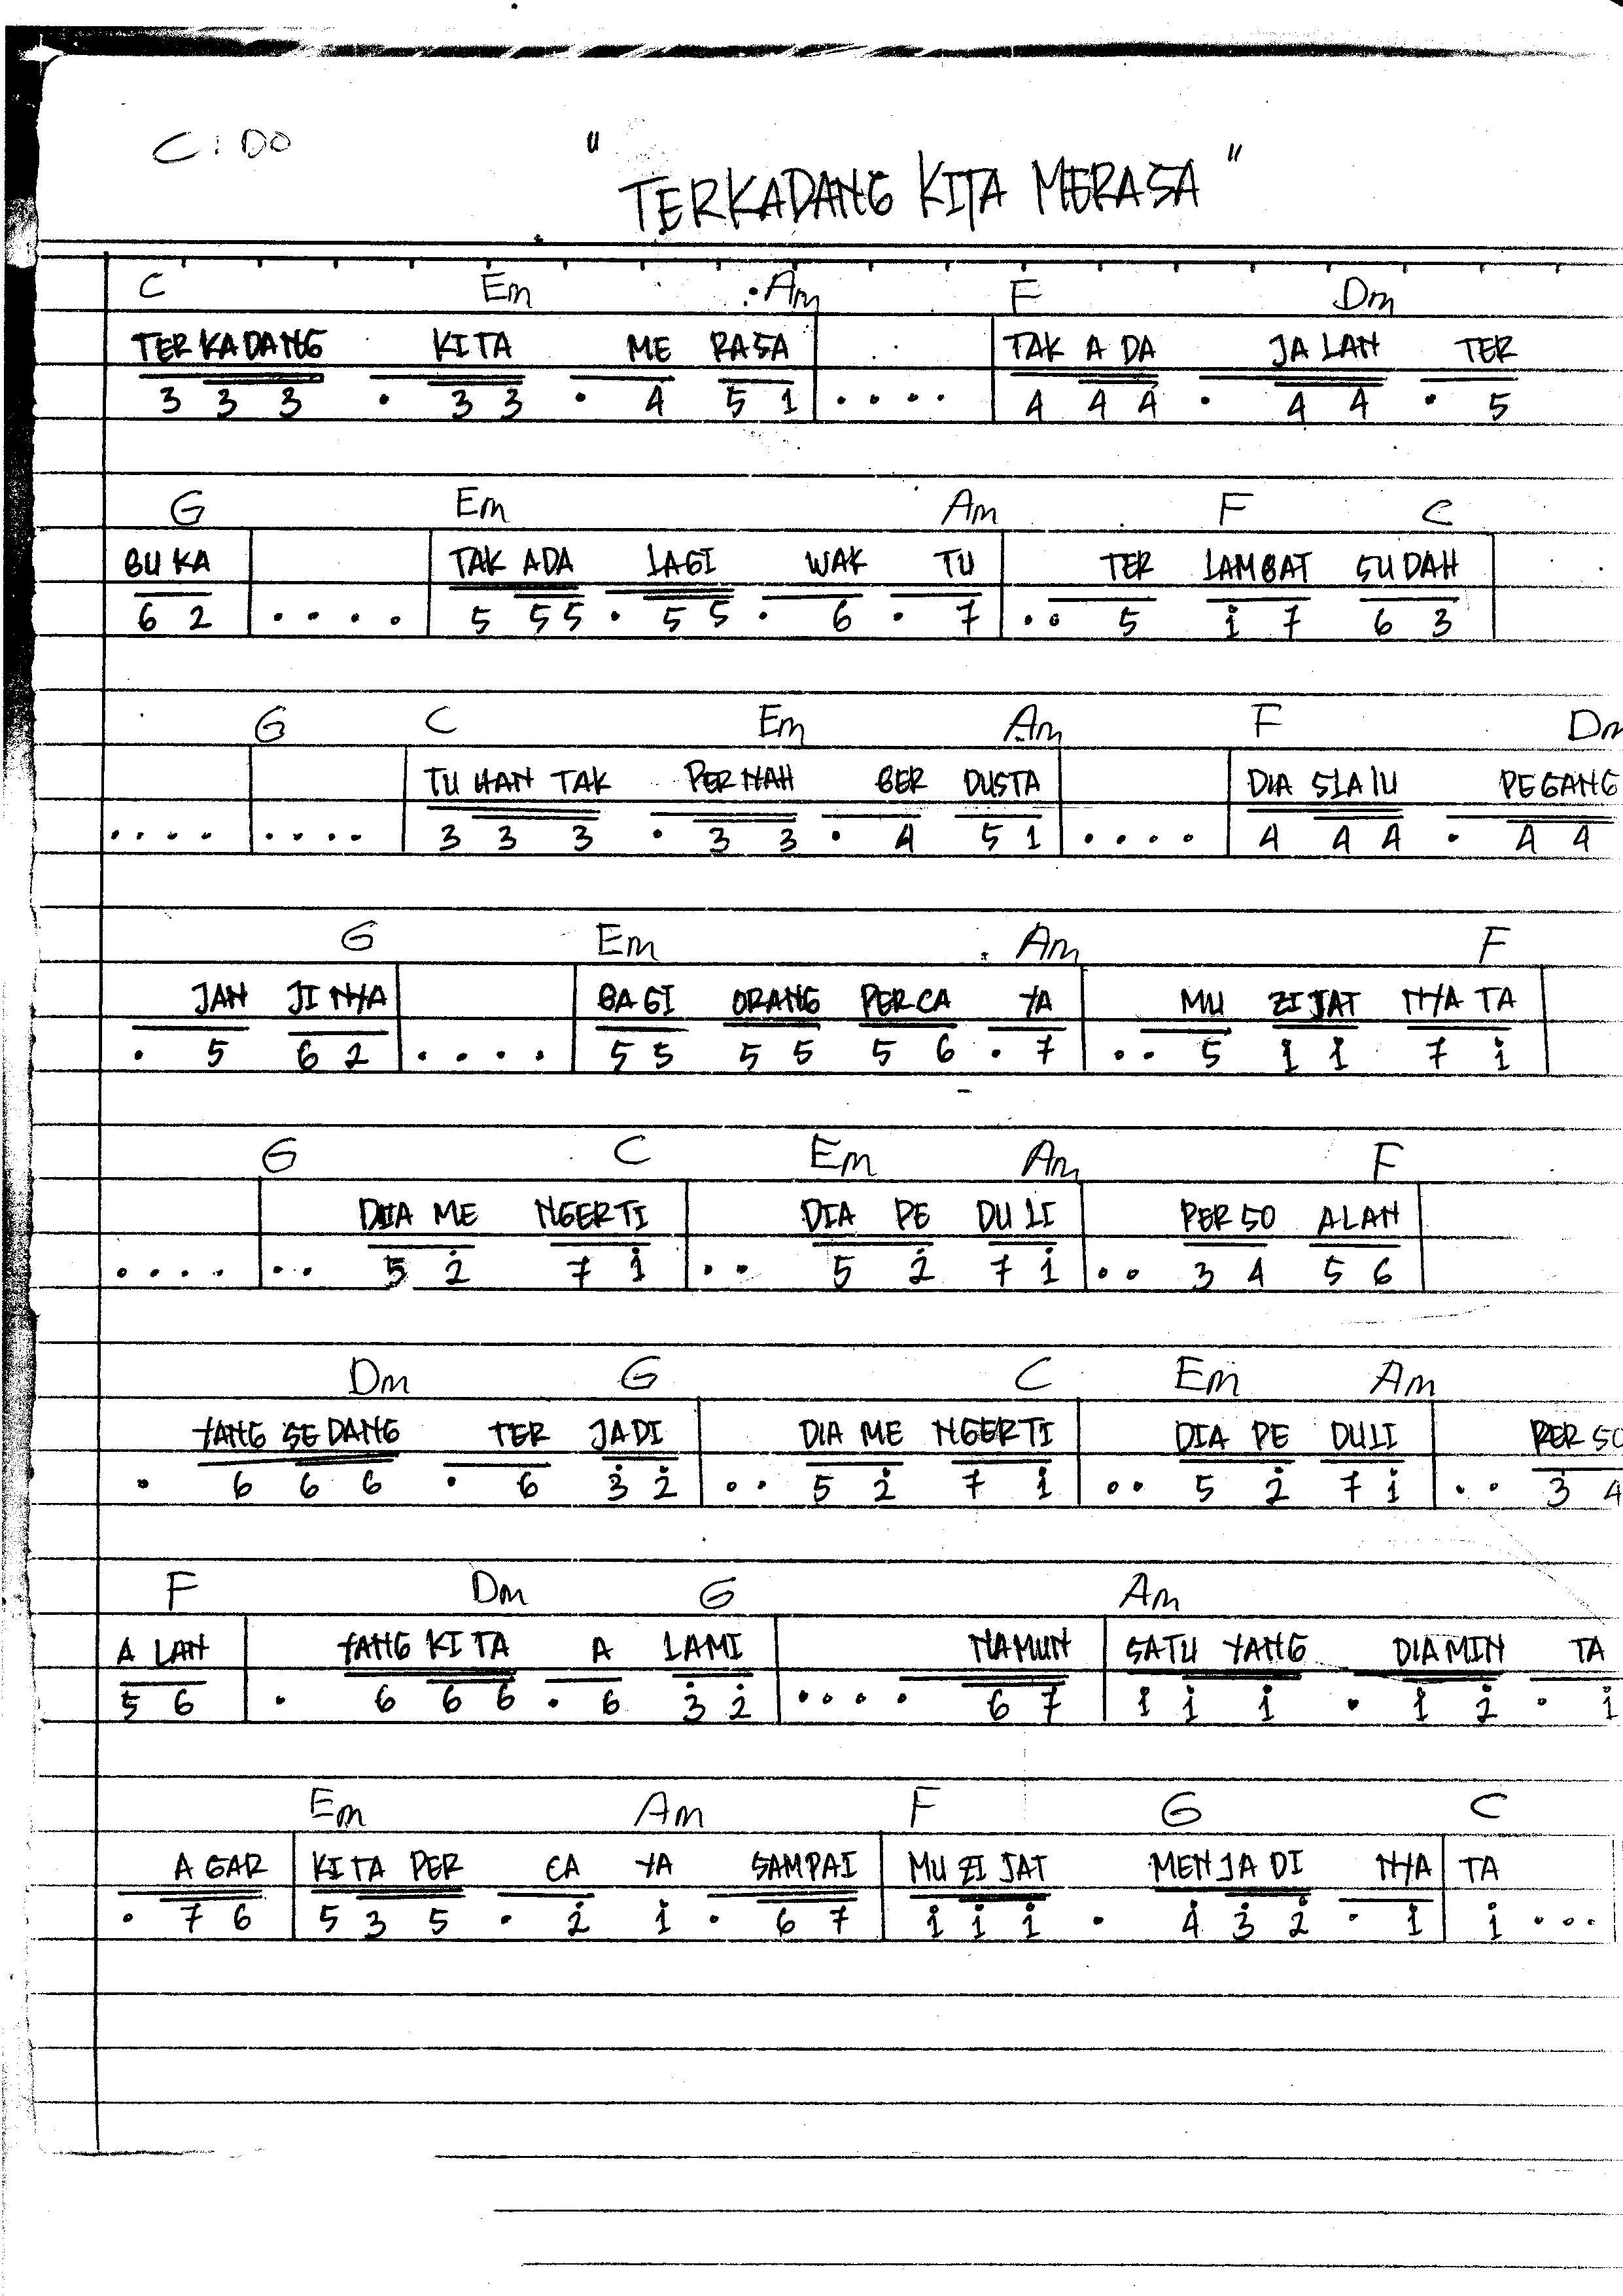 C : DO
" TERKADANG KITA MERASA "
C Em Am F Dm
TERKADANG KITA ME RASA TAK A DA JA LAN TER
3 3 3 . 3 3 . 4 5 1 | . . . . | 4 4 4 . 4 4 . 5
G Em Am F C
BU KA TAK ADA LAGI WAK TU TER LAMBAT SUDAH
6 2 | . . . . | 5 5 5 . 5 5 . 6 . 7 | . . 5 i 7 6 3 |
G C Em Am F Dm
TU HAN TAK PER NAH BER DUSTA DIA SLALU PEGANG
. . . . | . . . . | 3 3 3 . 3 3 . 4 5 1 | . . . . | 4 4 4 . 4 4
G Em Am F
JAN JI NYA BA GI ORANG PERCA YA MU ZIJAT NYA TA
. 5 6 2 | . . . . | 5 5 5 5 5 6 . 7 | . . 5 i i 7 i |
G C Em Am F
DIA ME NGERTI DIA PE DU LI PER SO ALAN
. . . . | . . 5 2̇ 7 i | . . 5 2̇ 7 i | . . 3 4 5 6 |
Dm G C Em Am
YANG SE DANG TER JADI DIA ME NGERTI DIA PE DULI PER SO
. 6 6 6 . 6 3̇ 2̇ | . . 5 2̇ 7 i | . . 5 2̇ 7 i | . . 3 4
F Dm G Am
A LAN YANG KI TA A LAMI NAMUN SATU YANG DIAMIN TA
5 6 | . 6 6 6 . 6 3̇ 2̇ | . . . . 6 7 | i i i . i 2̇ . i
Em Am F G C
A GAR KI TA PER CA YA SAMPAI MU ZI JAT MENJA DI NYA TA
. 7 6 | 5 3 5 . 2̇ i . 6 7 | i i i . 4̇ 3̇ 2̇ . i | i . . . |